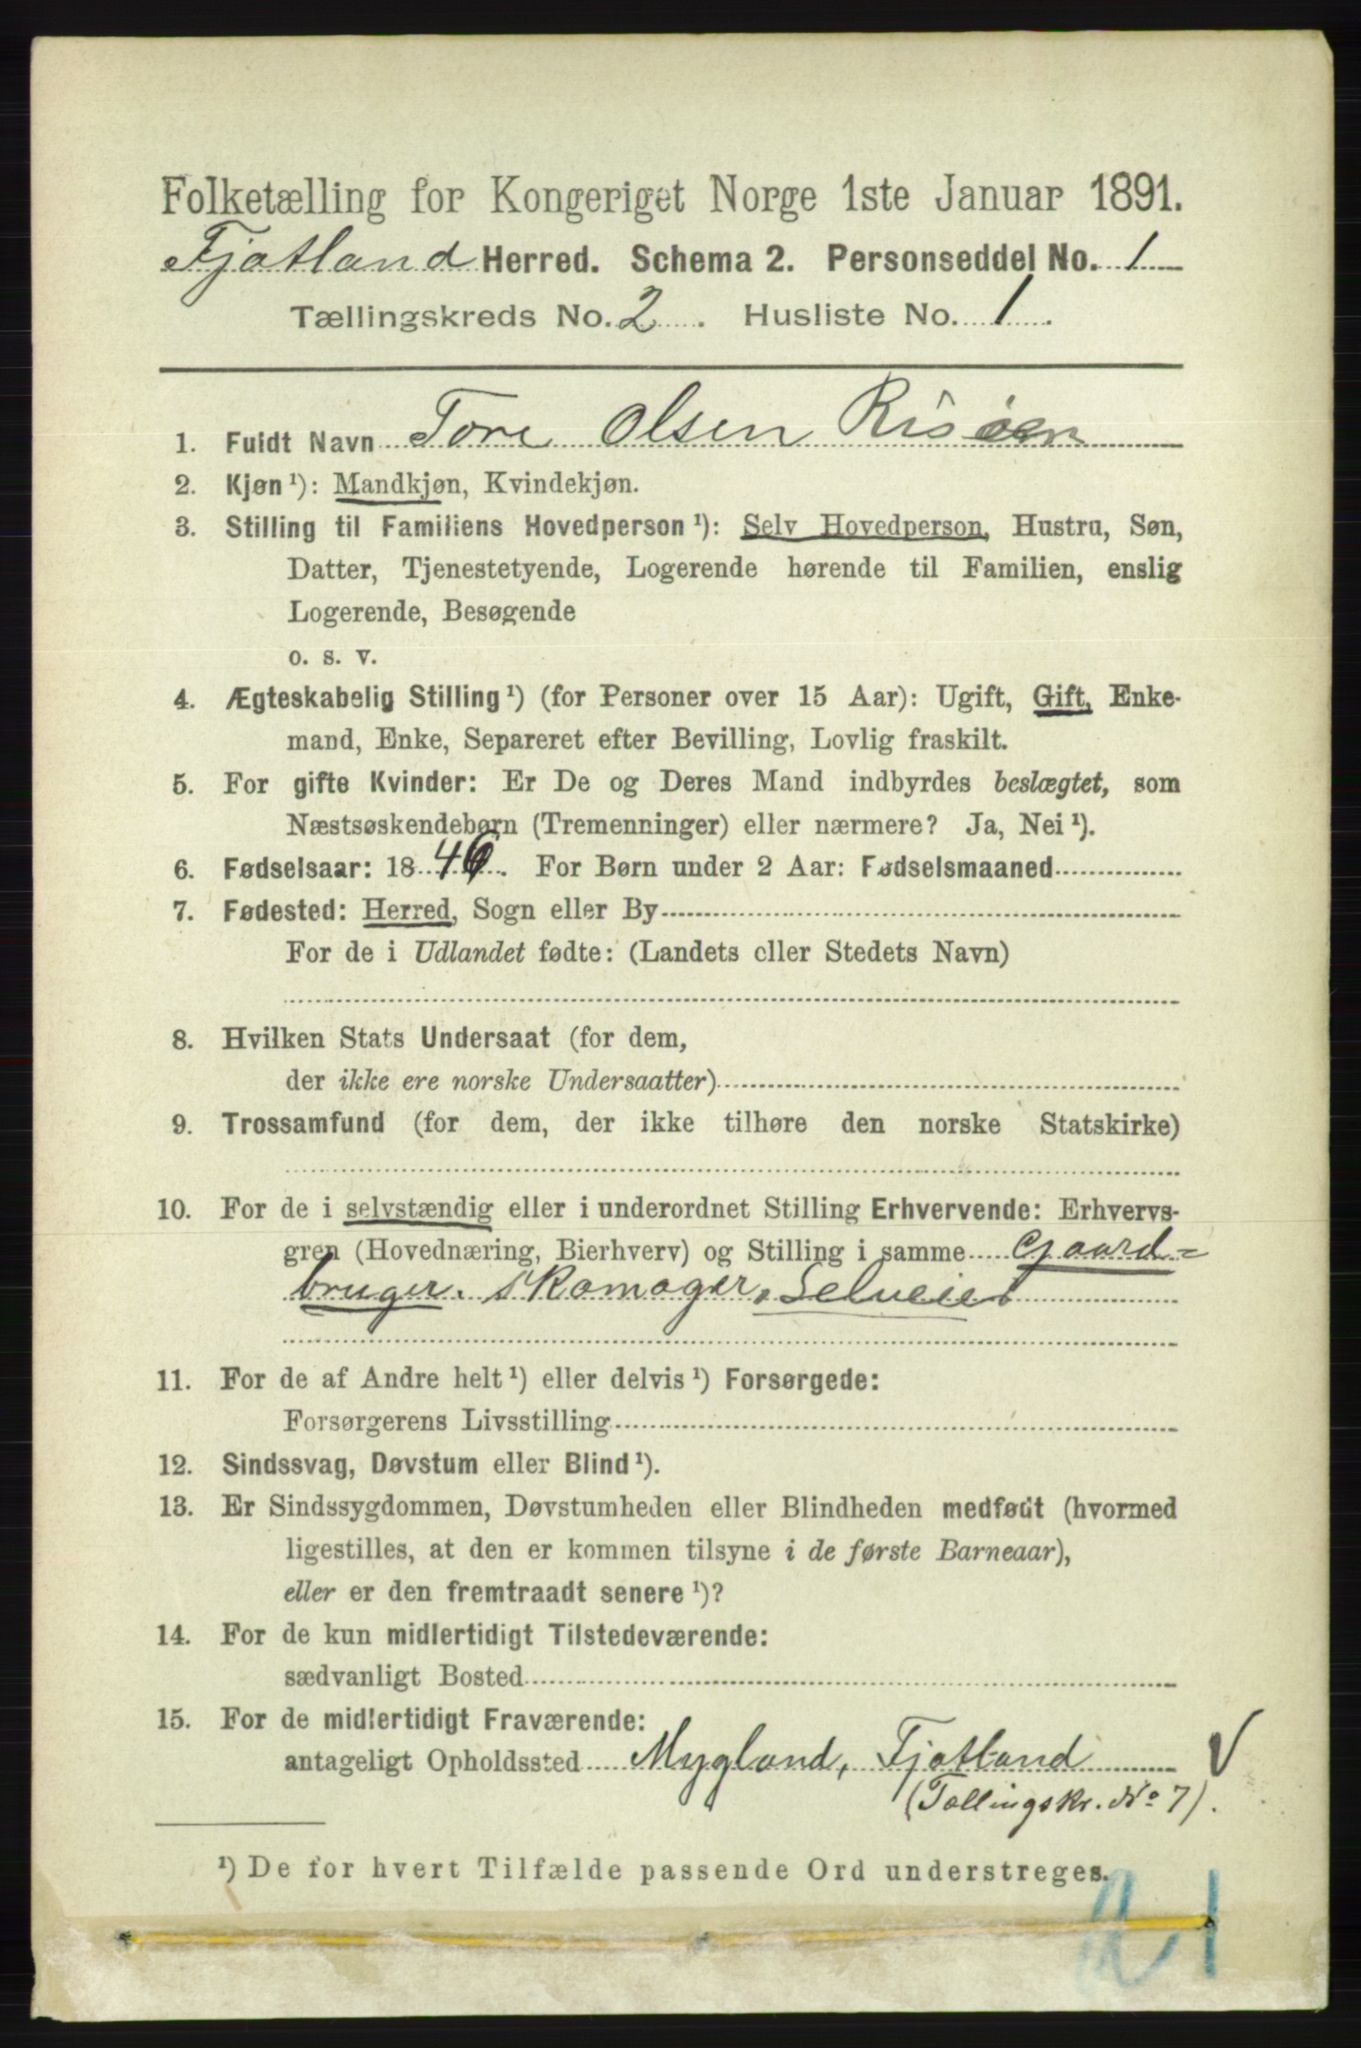 Folketælling for Kongeriget Norge 1ste Januar 1891.
Fjotland Herred. Schema 2. Personseddel No. 1
Tællingskreds No. 2. Husliste No. 1.
1. Fuldt Navn Tore Olsen Risøen
2. Kjøn ¹): Mandkjøn, Kvindekjøn.
3. Stilling til Familiens Hovedperson ¹): Selv Hovedperson, Hustru, Søn,
Datter, Tjenestetyende, Logerende hørende til Familien, enslig
Logerende, Besøgende
o. s. v.
4. Ægteskabelig Stilling ¹) (for Personer over 15 Aar): Ugift, Gift, Enke-
mand, Enke, Separeret efter Bevilling, Lovlig fraskilt.
5. For gifte Kvinder: Er De og Deres Mand indbyrdes beslægtet, som
Næstsøskendebørn (Tremenninger) eller nærmere? Ja, Nei ¹).
6. Fødselsaar: 1846. For Børn under 2 Aar: Fødselsmaaned
7. Fødested: Herred, Sogn eller By
For de i Udlandet fødte: (Landets eller Stedets Navn)
8. Hvilken Stats Undersaat (for dem,
der ikke ere norske Undersaatter)
9. Trossamfund (for dem, der ikke tilhøre den norske Statskirke)
10. For de i selvstændig eller i underordnet Stilling Erhvervende: Erhvervs-
gren (Hovednæring, Bierhverv) og Stilling i samme Gaard=
bruger. skomager, Selveier
11. For de af Andre helt ¹) eller delvis ¹) Forsørgede:
Forsørgerens Livsstilling
12. Sindssvag, Døvstum eller Blind ¹).
13. Er Sindssygdommen, Døvstumheden eller Blindheden medfødt (hvormed
ligestilles, at den er kommen tilsyne i de første Barneaar),
eller er den fremtraadt senere ¹)?
14. For de kun midlertidigt Tilstedeværende:
sædvanligt Bosted
15. For de midlertidigt Fraværende:
antageligt Opholdssted Mygland, Fjotland V
(Tællingskr. No 7).
¹) De for hvert Tilfælde passende Ord understreges.